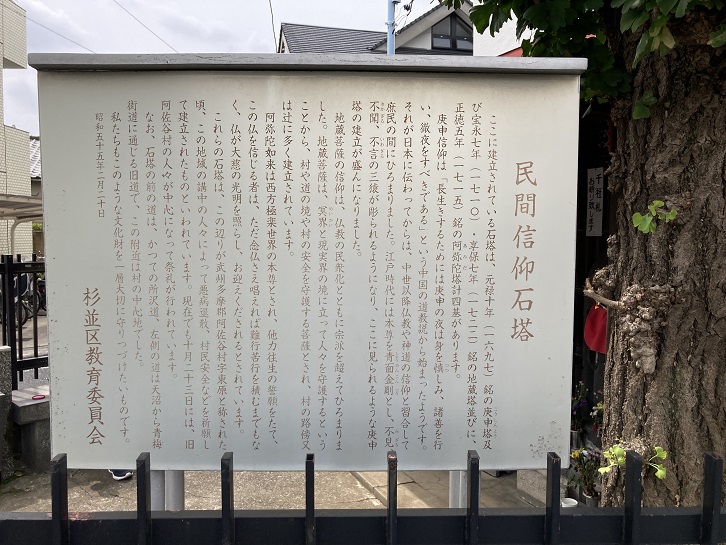 民間信仰石塔
ここに建立されている石塔は、元禄十年(一六九七)銘の庚申塔及
び宝永七年(一七一〇)・享保七年(一七二二)銘の地蔵塔並びに、
正徳五年(一七一五)銘の阿弥陀塔計四基があります。
庚申信仰は「長生きするためには庚申の夜は身を慎しみ、諸善を行
い、徹夜をすべきである」という中国の道教説から始まったようです。
それが日本に伝わってからは、中世以降仏教や神道の信仰と習合して
庶民の間にひろまりました。江戸時代には本尊を青面金剛とし、不見、
不聞、不言の三猿が彫られるようになり、ここに見られるような庚申
塔の建立が盛んになりました。
地蔵菩薩の信仰は、仏教の民衆化とともに宗派を超えてひろまりま
した。地蔵菩薩は、冥界と現実界の境に立って人々を守護するという
ことから、村や道の境や村の安全を守護する菩薩とされ、村の路傍又
は辻に多く建立されています。
阿弥陀如来は西方極楽世界の本尊とされ、他力往生の誓願をたて、
この仏を信じる者は、ただ念仏さえ唱えれば難行苦行を積むまでもな
く、仏が大慈の光明を照らし、お迎えくださるとされています。
これらの石塔は、この辺りが武州多摩郡阿佐谷村字東原と称された
頃、この地域の講中の人々によって悪病退散、村民安全などを祈願し
て建立されたものといわれています。現在でも十月二十三日には、旧
阿佐谷村の人々が中心になって祭礼が行われています。
なお、石塔の前の道は、かつての所沢道、左側の道は天沼から青梅
街道に通じる旧道で、この附近は村の中心地でした。
私たちもこのような文化財を一層大切に守りつづけたいものです。
昭和五十五年二月二十日
杉並区教育委員会
千社札